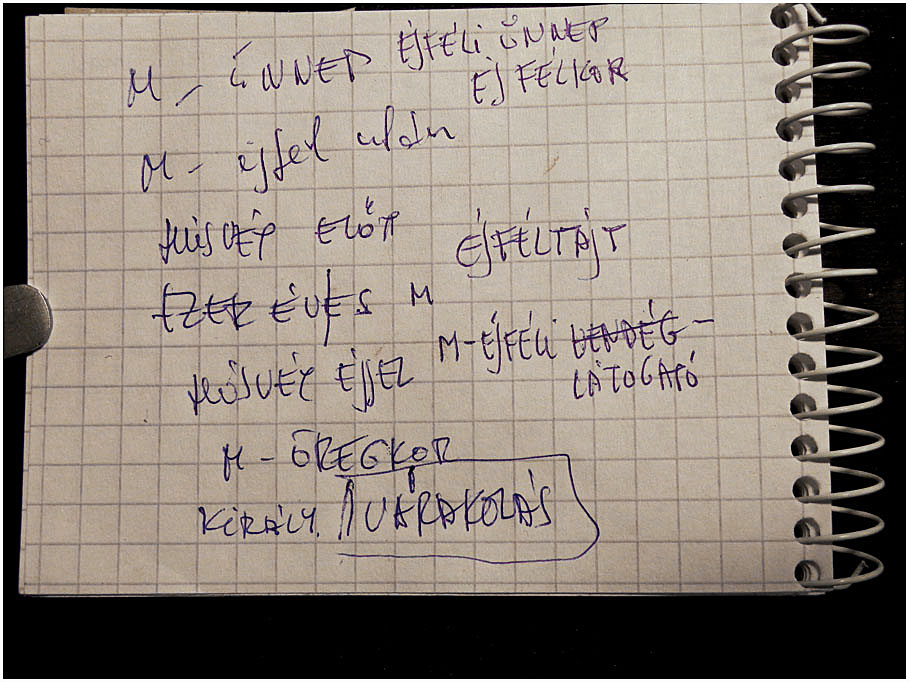 M - ÜNNEP ÉJFÉLI ÜNNEP
ÉJFÉLKOR
M - éjfél után
HÚSVÉT ELŐTT
ÉJFÉLTÁJT
EZER ÉVES M
M-ÉJFÉLI VENDÉG-
LÁTOGATÓ
HÚSVÉT ÉJJEL
M - ÖREGKOR
KIRÁLY. VÁRAKOZÁS